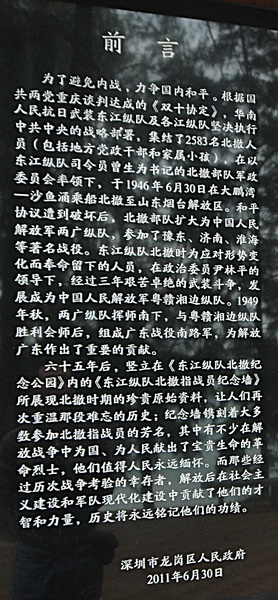 前言
为了避免内战，力争国内和平。根据国
共两党重庆谈判达成的《双十协定》，华南
人民抗日武装东江纵队及各江纵队坚决执行
中共中央的战略部署，集结了2583名北撤人
员（包括地方党政干部和家属小孩），在以
东江纵队司令员曾生为书记的北撤部队军政
委员会率领下，于1946年6月30日在大鹏湾
—沙鱼涌乘船北撤至山东烟台解放区。和平
协议遭到破坏后，北撤部队扩大为中国人民
解放军两广纵队，参加了豫东、济南、淮海
等著名战役。东江纵队北撤时为应对形势变
化而奉命留下的人员，在政治委员尹林平的
领导下，经过三年艰苦卓绝的武装斗争，发
展成为中国人民解放军粤赣湘边纵队。1949
年秋，两广纵队挥师南下，与粤赣湘边纵队
胜利会师后，组成广东战役南路军，为解放
广东作出了重要的贡献。
六十五年后，竖立在《东江纵队北撤纪
念公园》内的《东江纵队北撤指战员纪念墙》
所展现北撤时期的珍贵原始资料，让人们再
次重温那段难忘的历史；纪念墙镌刻着大多
数参加北撤指战员的芳名，其中有不少在解
放战争中为国、为人民献出了宝贵生命的革
命烈士，他们值得人民永远缅怀。而那些经
过历次战争考验的幸存者，解放后在社会主
义建设和军队现代化建设中贡献了他们的才
智和力量，历史将永远铭记他们的功绩。
深圳市龙岗区人民政府
2011年6月30日